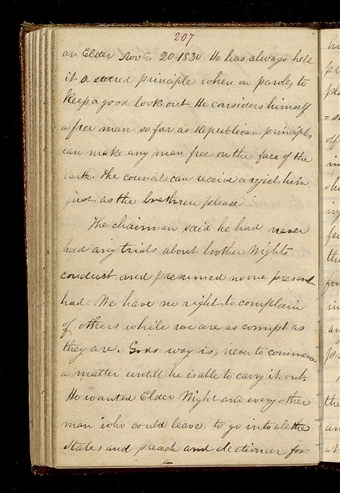 207
an Elder Nov 20 1830 He has always held
it a sacred principle when on parole, to
Keep a good look out. He considers himself
a free man so far as Republican principles
can make any man free on the face of the
earth. The council can receive or reject him
just as the brethren please
The chairman said he had never
had any trials about brother Wights
conduct and presumed no one present
had. We have no right to complain
of others while we are as corrupt as
they are. Gods way is, never to commence
a matter untill he is able to carry it out.
He wanted Elder Wight and every other
man who could leave, to go into all the
states and preach and electioneer for